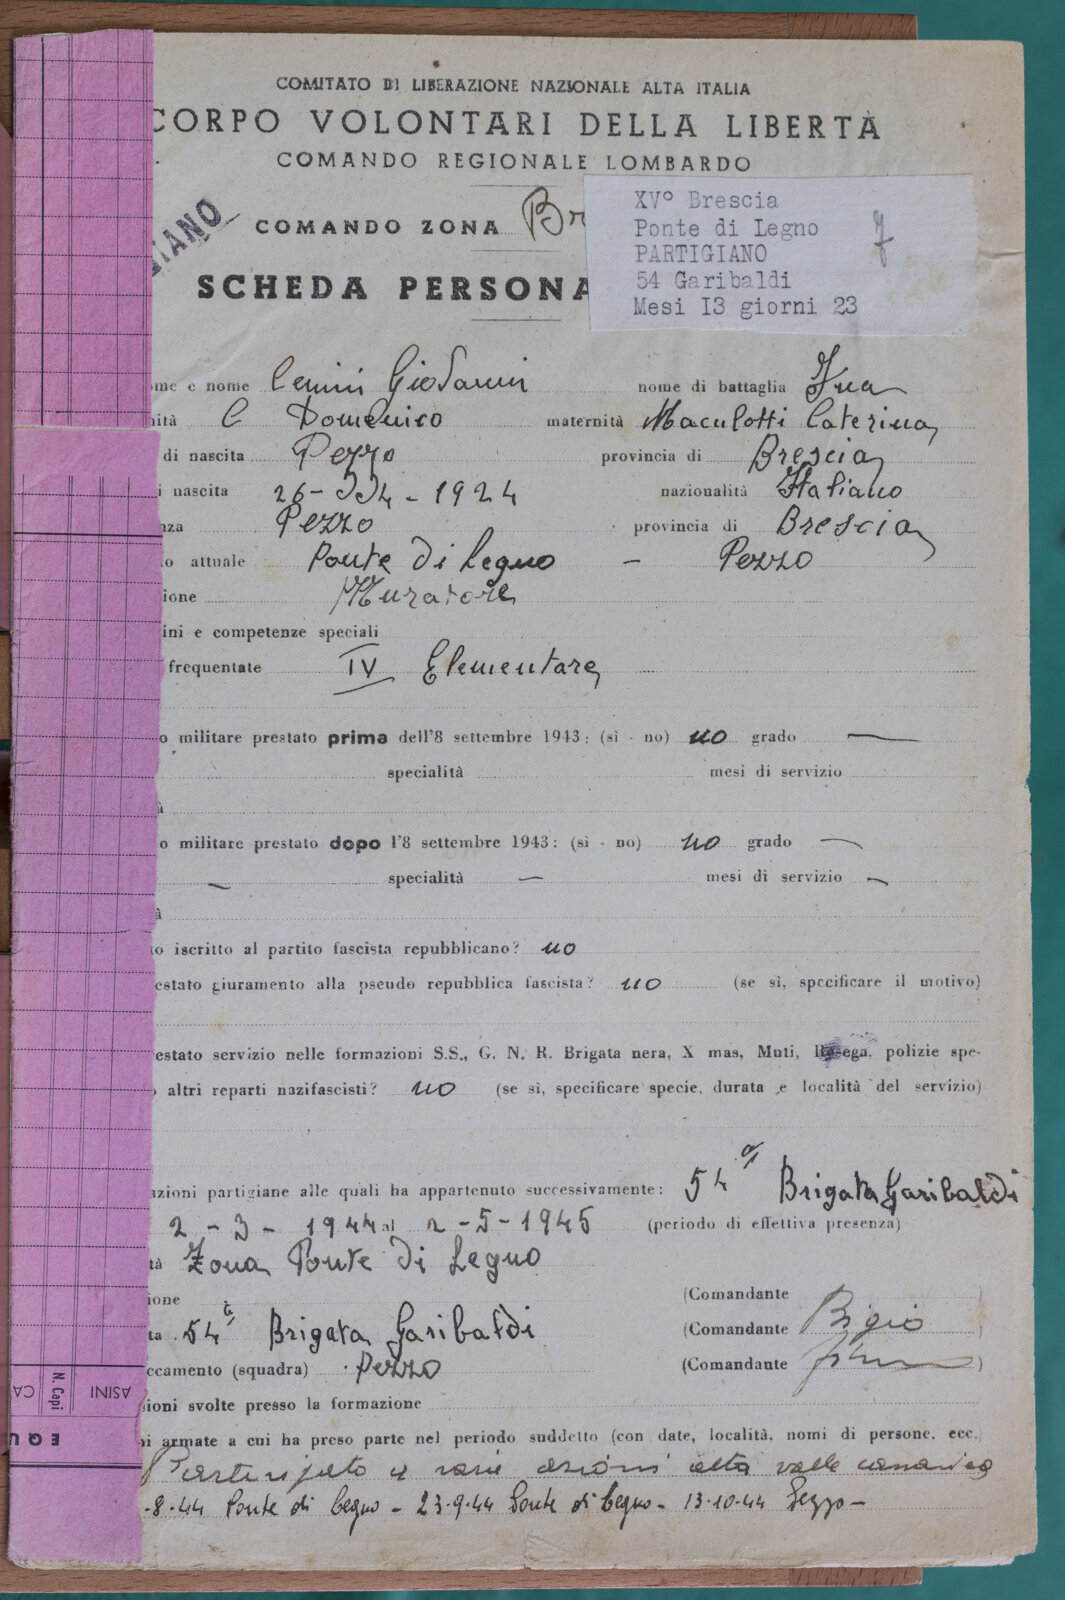 COMITATO DI LIBERAZIONE NAZIONALE ALTA ITALIA
CORPO VOLONTARI DELLA LIBERTÀ
COMANDO REGIONALE LOMBARDO
COMANDO ZONA Br
IANO
XV° Brescia
Ponte di Legno
PARTIGIANO
54 Garibaldi
Mesi I3 giorni 23
7
SCHEDA PERSONA
ome e nome Cenini Giovanni nome di battaglia
nità C Domenico maternità Maculotti Caterina
di nascita Pezzo provincia di Brescia
i nascita 26 - 4 - 1924 nazionalità Italiano
nza Pezzo provincia di Brescia
o attuale Ponte di Legno - Pezzo
ione Muratore
ini e competenze speciali
frequentate IV Elementare
o militare prestato prima dell'8 settembre 1943: (sì - no) no grado —
specialità mesi di servizio
à
o militare prestato dopo l'8 settembre 1943: (sì - no) no grado —
— specialità — mesi di servizio —
à
to iscritto al partito fascista repubblicano? no
estato giuramento alla pseudo repubblica fascista? no (se sì, specificare il motivo)
estato servizio nelle formazioni S.S., G. N. R. Brigata nera, X mas, Muti, Resega, polizie spe-
o altri reparti nazifascisti? no (se sì, specificare specie, durata e località del servizio)
azioni partigiane alle quali ha appartenuto successivamente: 54ª Brigata Garibaldi
2 - 3 - 1944 al 2 - 5 - 1945 (periodo di effettiva presenza)
tà Zona Ponte di Legno
ione (Comandante )
ta 54ª Brigata Garibaldi (Comandante Bigio )
ccamento (squadra) Pezzo (Comandante )
ioni svolte presso la formazione
ni armate a cui ha preso parte nel periodo suddetto (con date, località, nomi di persone, ecc.)
Partecipato a varie azioni alta valle camonica
-8-44 Ponte di Legno - 23-9-44 Ponte di Legno - 13-10-44 Pezzo -
ASINI
N. Capi
CA
EQU